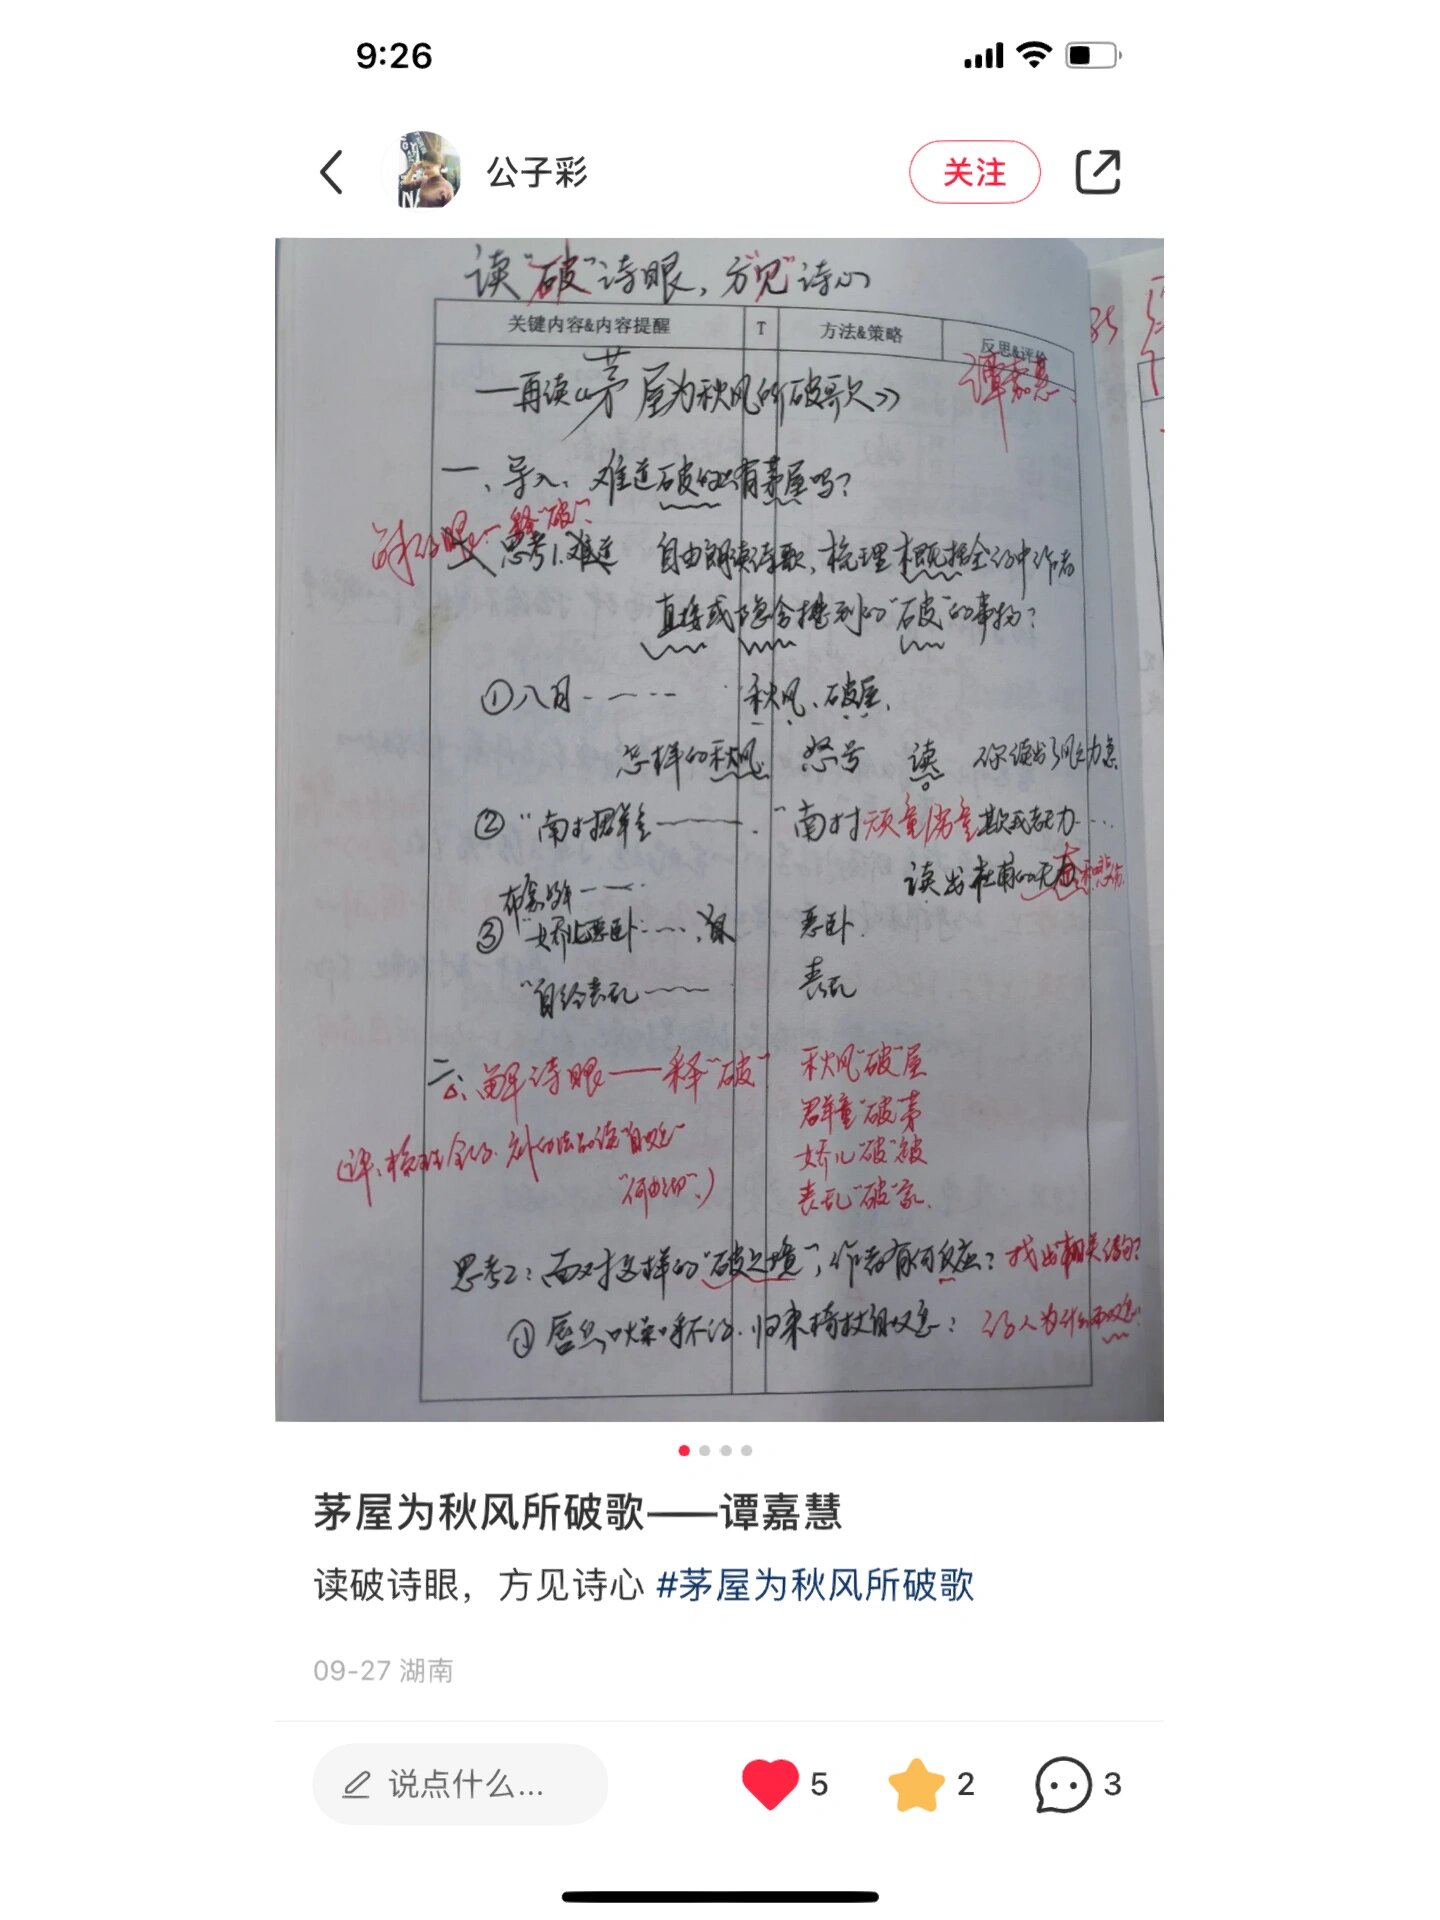 9:26
公子彩
关注
读“破”诗眼，方“见”诗心
关键内容&内容提醒 T 方法&策略 反思&评价
—再读《茅屋为秋风所破歌》 谭嘉慧
一、导入、难道破的只有茅屋吗？
解诗眼—释“破”
思考1.难道 自由朗读诗歌，梳理概括全诗中作者
直接或隐含提到的“破”的事物？
①八月 秋风、破屋、
怎样的秋风 怒号 读
②“南村群童 “南村顽童倦童欺我老无力…
读出杜甫的无奈和悲伤
布衾
③“娇儿恶卧 恶卧
“自经丧乱 丧乱
二、解诗眼——释“破” 秋风“破”屋
群童“破”茅
娇儿“破”被
丧乱“破”家
“自叹息”
思考2：面对这样的“破之境”，作者有何反应？找出相关诗句？
①唇焦口燥呼不得，归来倚杖自叹息：诗人为什么而叹息
茅屋为秋风所破歌——谭嘉慧
读破诗眼，方见诗心 #茅屋为秋风所破歌
09-27 湖南
说点什么... 5 2 3